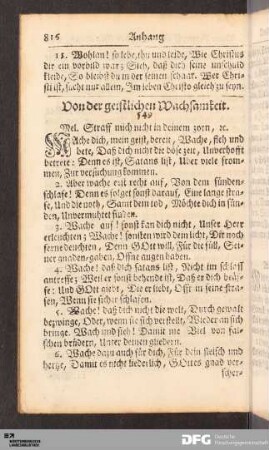 816 Anhang
11. Wohlan! so lebe, thu und leide, Wie Christus
dir ein vorbild war; Sieh, daß dich seine unschuld
kleide, So bleibst du in der seinen schaar. Wer Chri-
sti ist, sucht nur allein, Im leben Christo gleich zu seyn.
Von der geistlichen Wachsamkeit.
549
Mel. Straff mich nicht in deinem zorn, ꝛc.
Mache dich, mein geist, bereit, Wache, fleh und
bete, Daß dich nicht die böse zeit, Unverhofft
betrete: Denn es ist, Satans list, Uber viele from-
men, Zur versuchung kommen.
2. Aber wache erst recht auf, Von dem sünden-
schlafe! Denn es folget sonst darauf, Eine lange stra-
fe, Und die noth, Samt dem tod, Möchte dich in sün-
den, Unvermuthet finden.
3. Wache auf! sonst kan dich nicht, Unser Herr
erleuchten; Wache! sonsten wird dein licht, Dir noch
ferne deuchten, Denn GOtt will, Für die füll, Sei-
ner gnaden-gaben, Offne augen haben.
4. Wache! daß dich satans list, Nicht im schlaff
antreffe; Weil er sonst behende ist, Daß er dich beäf-
fe: Und GOtt giebt, Die er liebt, Offt in seine stra-
fen, Wenn sie sicher schlafen.
5. Wache! daß dich nicht die welt, Durch gewalt
bezwinge, Oder, wenn sie sich verstellt, Wieder an sich
bringe. Wach und sieh! Damit nie Viel von fal-
schen brüdern, Unter deinen gliedern.
6. Wache dazu auch für dich, Für dein fleisch und
hertze, Damit es nicht liederlich, GOttes gnad ver-
scher-
DFG Deutsche
Forschungsgemeinschaft